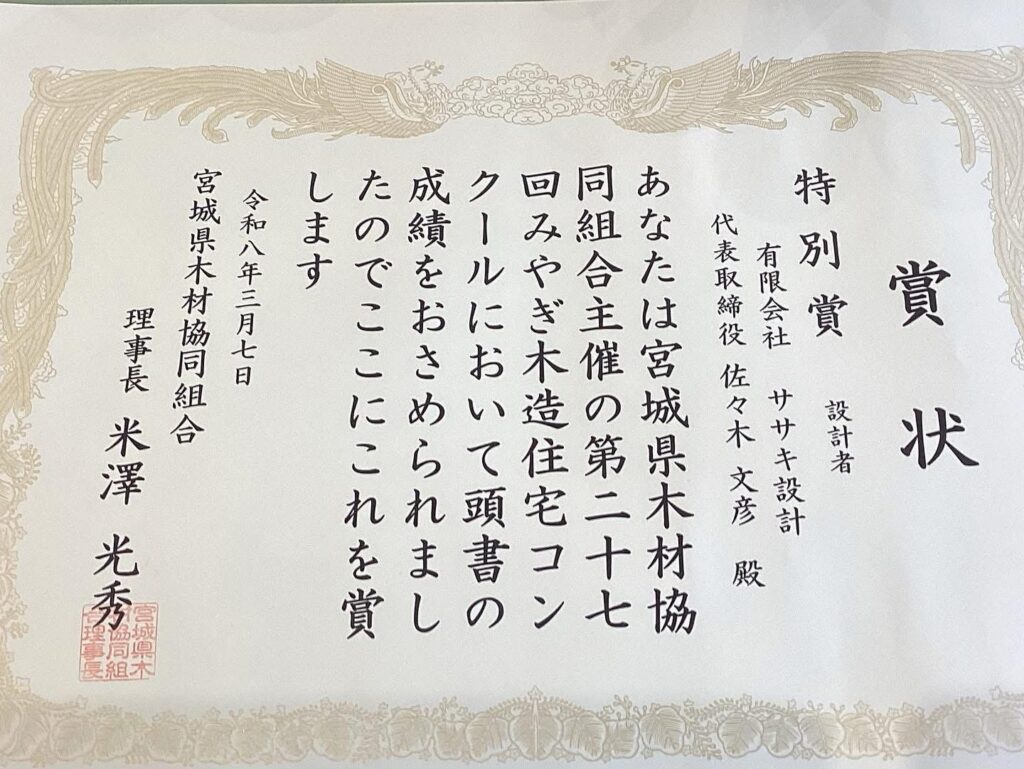 賞状
特別賞
設計者
有限会社 ササキ設計
代表取締役 佐々木 文彦 殿
あなたは宮城県木材協
同組合主催の第二十七
回みやぎ木造住宅コン
クールにおいて頭書の
成績をおさめられまし
たのでここにこれを賞
します
令和八年三月七日
宮城県木材協同組合
理事長 米澤 光秀
宮城県木
材協同組
合理事長